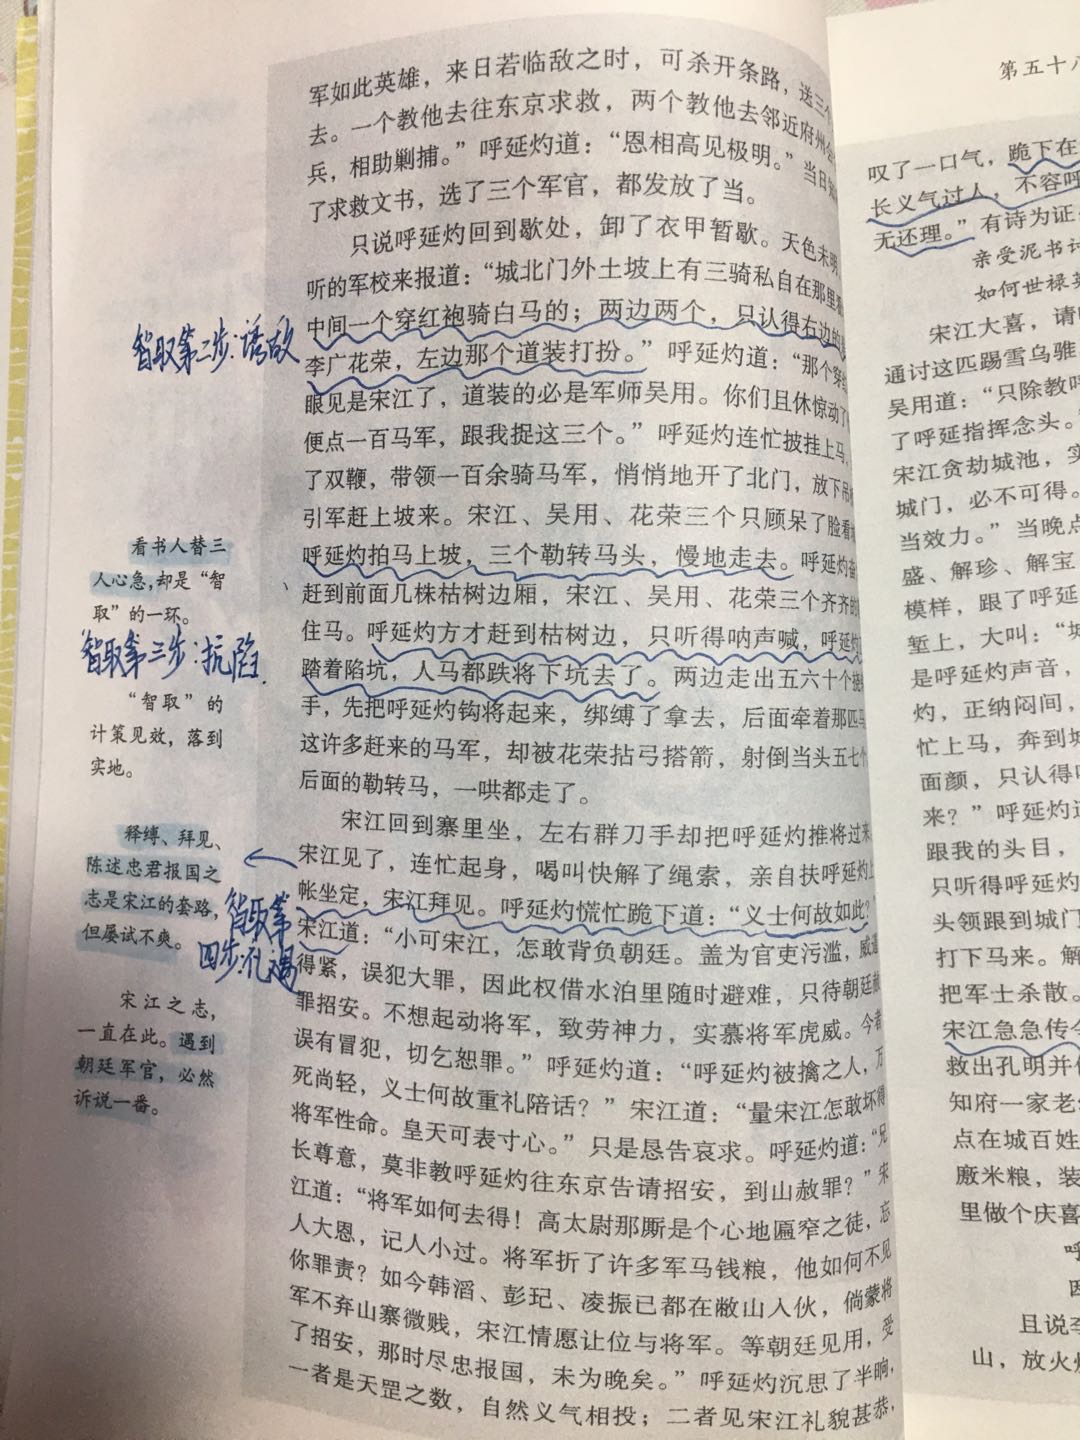 军如此英雄，来日若临敌之时，可杀开条路，送三
去。一个教他去往东京求救，两个教他去邻近府州会
兵，相助剿捕。”呼延灼道：“恩相高见极明。”当日
了求救文书，选了三个军官，都发放了当。
只说呼延灼回到歇处，卸了衣甲暂歇。天色未明，
听的军校来报道：“城北门外土坡上有三骑私自在那里
中间一个穿红袍骑白马的；两边两个，只认得右边的
李广花荣，左边那个道装打扮。”呼延灼道：“那个穿
眼见是宋江了，道装的必是军师吴用。你们且休惊动了
便点一百马军，跟我捉这三个。”呼延灼连忙披挂上马，
了双鞭，带领一百余骑马军，悄悄地开了北门，放下吊
引军赶上坡来。宋江、吴用、花荣三个只顾呆了脸看
呼延灼拍马上坡，三个勒转马头，慢地走去。呼延灼
赶到前面几株枯树边厢，宋江、吴用、花荣三个齐齐的
住马。呼延灼方才赶到枯树边，只听得呐声喊，呼延灼
踏着陷坑，人马都跌将下坑去了。两边走出五六十个挠
手，先把呼延灼钩将起来，绑缚了拿去，后面牵着那匹马
这许多赶来的马军，却被花荣拈弓搭箭，射倒当头五七个
后面的勒转马，一哄都走了。
宋江回到寨里坐，左右群刀手却把呼延灼推将过来
宋江见了，连忙起身，喝叫快解了绳索，亲自扶呼延灼上
帐坐定，宋江拜见。呼延灼慌忙跪下道：“义士何故如此？
宋江道：“小可宋江，怎敢背负朝廷。盖为官吏污滥，威逼
得紧，误犯大罪，因此权借水泊里随时避难，只待朝廷赦
罪招安。不想起动将军，致劳神力，实慕将军虎威。今者
误有冒犯，切乞恕罪。”呼延灼道：“呼延灼被擒之人，万
死尚轻，义士何故重礼陪话？”宋江道：“量宋江怎敢坏得
将军性命。皇天可表寸心。”只是恳告哀求。呼延灼道：“兄
长尊意，莫非教呼延灼往东京告请招安，到山赦罪？”宋
江道：“将军如何去得！高太尉那厮是个心地匾窄之徒，忘
人大恩，记人小过。将军折了许多军马钱粮，他如何不见
你罪责？如今韩滔、彭玘、凌振已都在敝山入伙，倘蒙将
军不弃山寨微贱，宋江情愿让位与将军。等朝廷见用，受
了招安，那时尽忠报国，未为晚矣。”呼延灼沉思了半晌，
一者是天罡之数，自然义气相投；二者见宋江礼貌甚恭，
智取第二步：诱敌
看书人替三
人心急，却是“智
取”的一环。
智取第三步：坑陷
“智取”的
计策见效，落到
实地。
释缚、拜见、
陈述忠君报国之
志是宋江的套路，
但屡试不爽。
智取第
四步：礼遇
宋江之志，
一直在此。遇到
朝廷军官，必然
诉说一番。
第五十八
叹了一口气，跪下在
长义气过人，不容呼
无还理。”有诗为证
亲受泥书讨
如何世禄英
宋江大喜，请
通讨这匹踢雪乌骓
吴用道：“只除教呼
了呼延指挥念头。
宋江贪劫城池，实
城门，必不可得。
当效力。”当晚点
盛、解珍、解宝
模样，跟了呼延
堑上，大叫：“城
是呼延灼声音，
灼，正纳闷间，
忙上马，奔到城
面颜，只认得呼
来？”呼延灼道
跟我的头目，
只听得呼延灼
头领跟到城门
打下马来。解
把军士杀散。
宋江急急传令
救出孔明并
知府一家老
点在城百姓
廒米粮，装
里做个庆喜
呼
因
且说李
山，放火